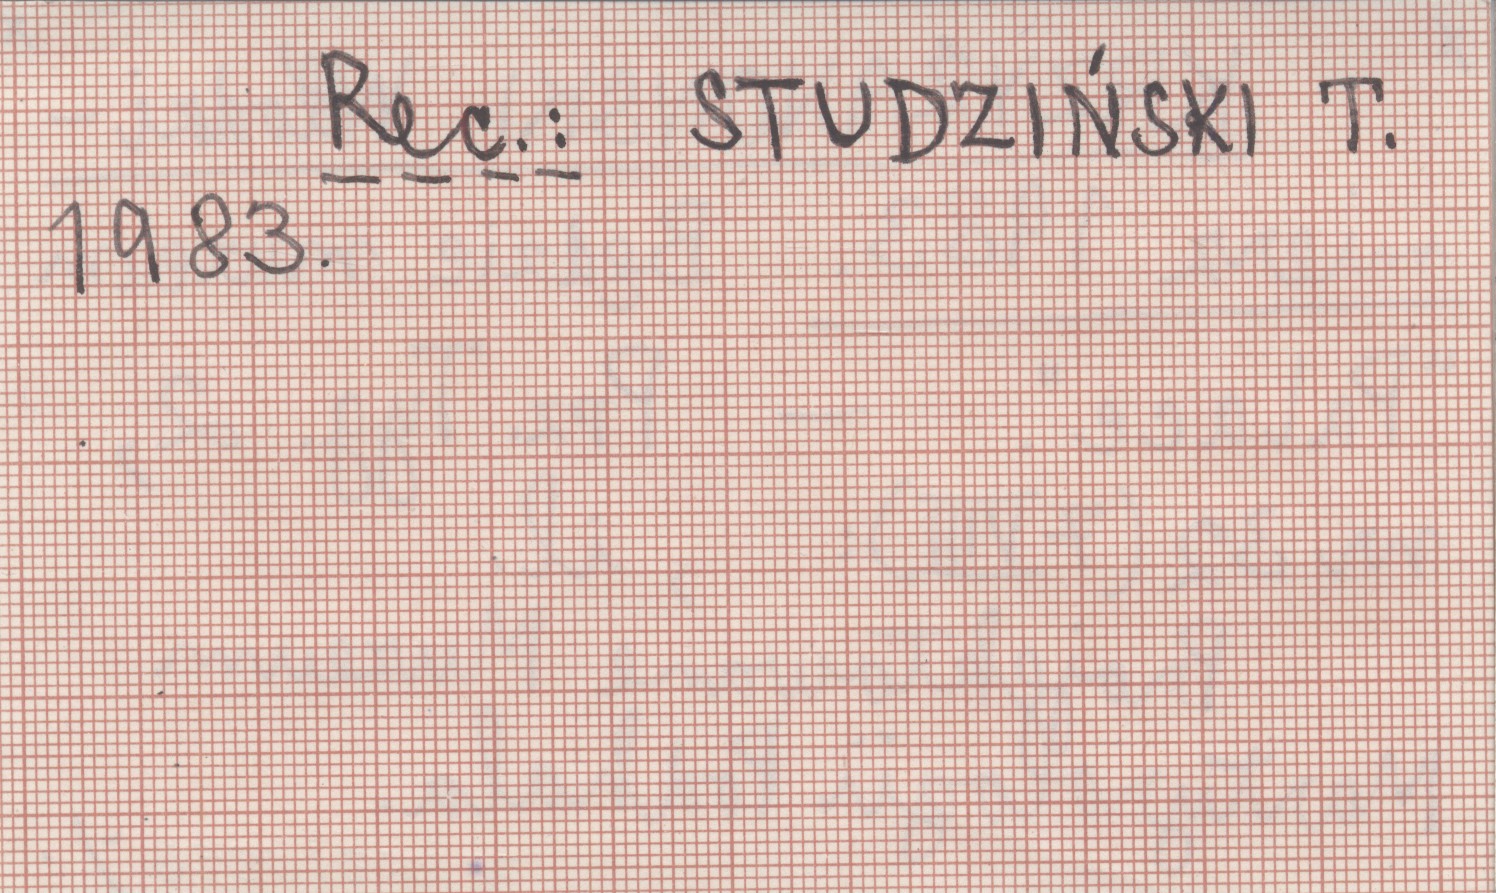 Rec.: STUDZIŃSKI T.
1983.